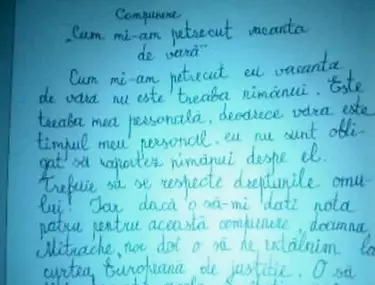 Compunere
„Cum mi-am petrecut vacanta
de vară"
Cum mi-am petrecut eu vacanta
de vara nu este treaba nimănui. Este
treaba mea personală, deoarece vara este
timpul meu personal. eu nu sunt obli-
gat să raportez nimănui despe el.
Trebuie să se respecte drepturile omu-
lui! Iar dacă o să-mi dati nota
patru pentru această compunere, doamna
Mitrache, noi doi o să ne întâlnim la
curtea Europeana de justitie. O să